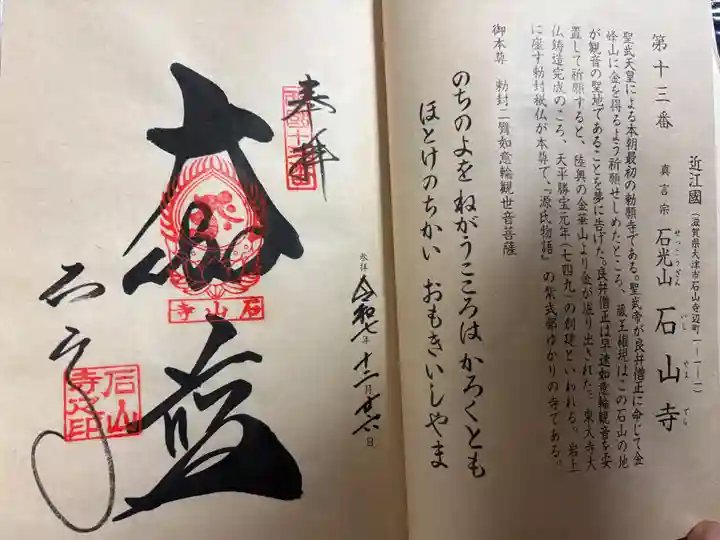 第十三番
近江國（滋賀県大津市石山寺辺町一ー一ー一）
真言宗 石光山 石山寺
せっこうざん いし やま でら
聖武天皇による本朝最初の勅願寺である。聖武帝が良弁僧正に命じて金
峰山に金を得るよう祈願せしめたところ、蔵王権現はこの石山の地
が観音の聖地であることを夢に告げた。良弁僧正は早速如意輪観音を安
置して祈願すると、陸奥の金華山より金が湧り出された。東大寺大
仏鋳造完成のころ、天平勝宝元年（七四九）の創建といわれる。岩上
に座す勅封秘仏が本尊で、『源氏物語』の紫式部ゆかりの寺である。
御本尊 勅封二臂如意輪観世音菩薩
のちのよを ねがうこころは かろくとも
ほとけのちかい おもきいしやま
奉拝
石山寺
参拝 令和七年 十二月 廿六日
石山
寺之印